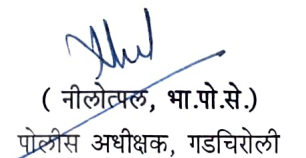 ( नीलोत्पल, भा.पो.से.)
पोलीस अधीक्षक, गडचिरोली